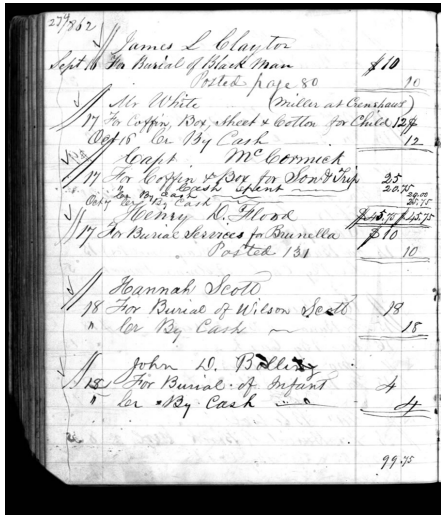 279/862
James L Claytor
Sept 16 For Burial of Black Man $10
Posted page 80 10
Mr White (Miller at Crenshaws)
17 For Coffin, Box, Sheet & Cotton for Child 12
Oct 16 Cr By Cash 12
Capt McCormick
17 For Coffin & Box for Son & Trip 25
" " Cash Spent 20.75
Cr By Cash 20.00
Oct 4 Cr By Cash 25.75
Henry D. Flood $45.75 $45.75
17 For Burial Services for Brunella $10
Posted 131 10
Hannah Scott
18 For Burial of Wilson Scott 18
" Cr By Cash 18
John D. Bolling
18 For Burial of Infant 4
" Cr By Cash 4
99.75